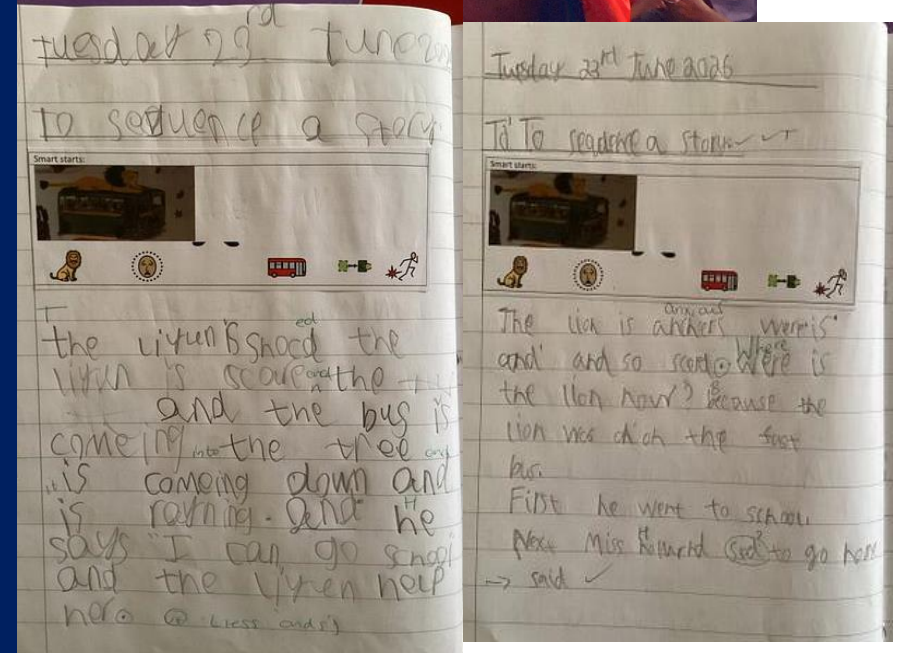 tuesday 23rd June
to sequence a story
Smart starts:
the liyun is shoced the
liyun is scare and the
and the bus is
comeing into the tree and
is comeing down and
is rayning. and he
says "I can go school
and the liyen help
her.
Less ands
Tuesday 23rd June 2026
To To seqdence a story
Smart starts:
anxious
The lion is anchers were is
and and so scerd. Where Were is
the lion now? Because the
lion was on the fast
bus.
First he went to school.
Next Miss sed to go here
→ said ✓